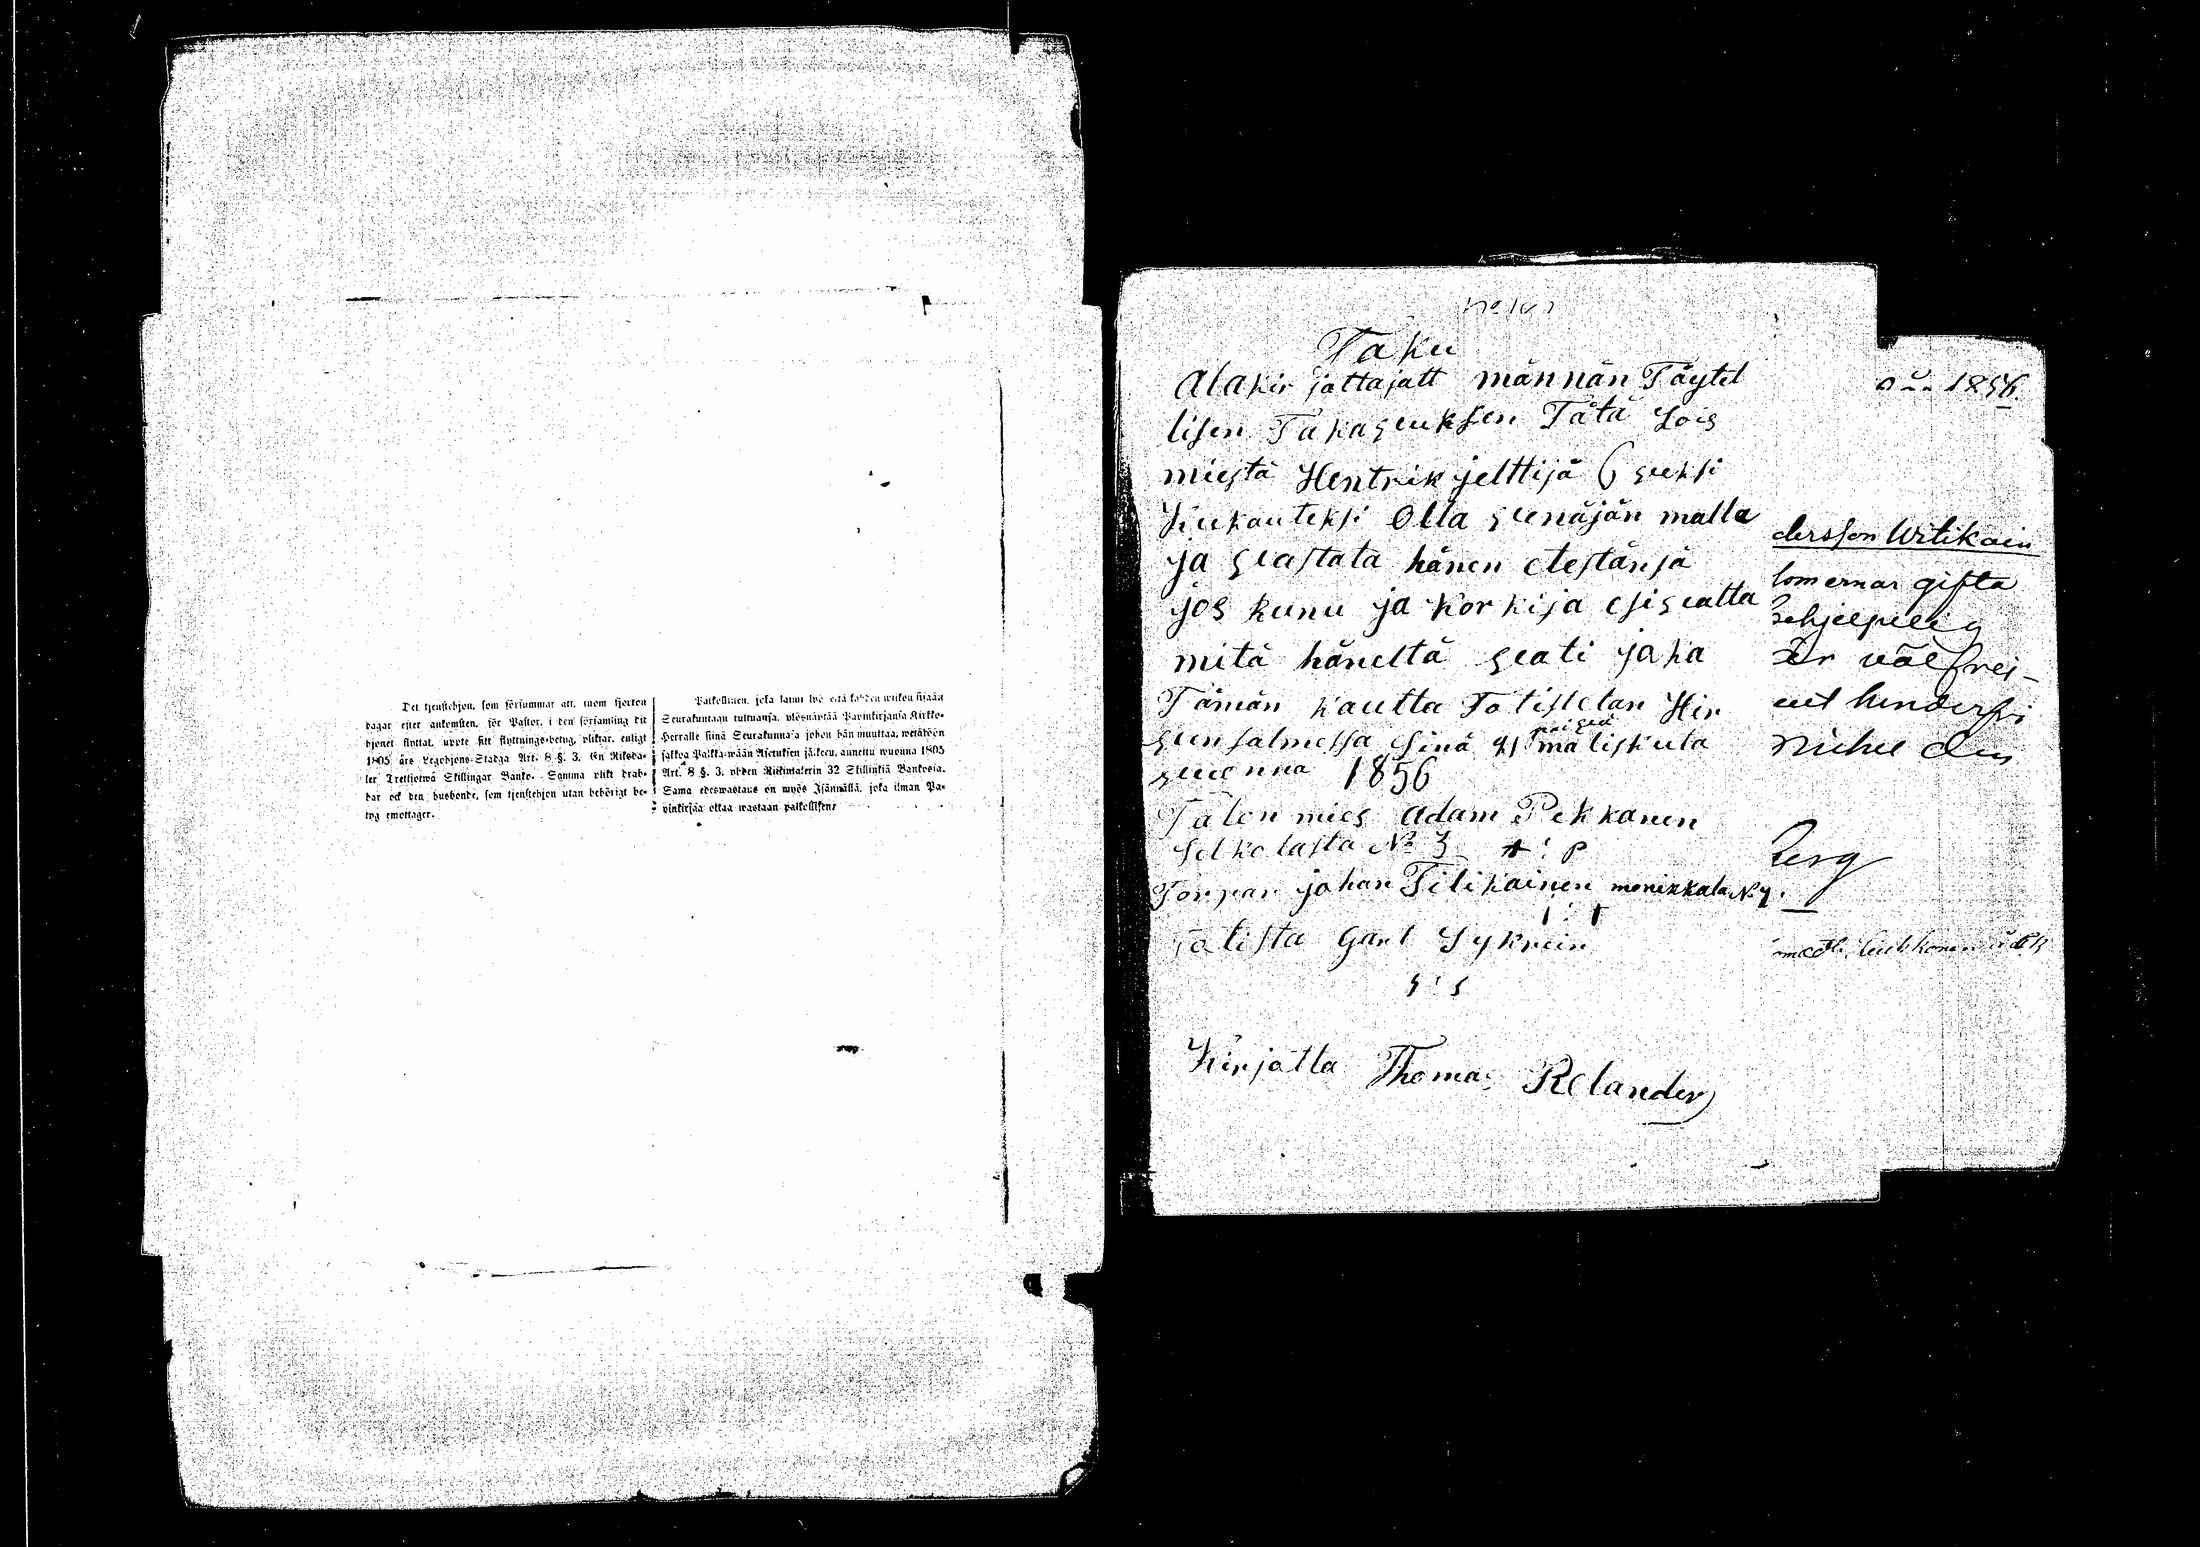 Det tjenstehjon, som försummar att, inom fjorton
dagar efter ankomsten, för Pastor, i den församling dit
hjonet flyttat, uppte sitt flyttnings-betyg, pliktar, enligt
1805 års Legohjons-Stadga Art. 8 §. 3, En Riksda-
ler Trettiotwå Skillingar Banko. Samma plikt drab-
bar ock den husbonde, som tjenstehjon utan behörigt be-
tyg emottager.
Palkollinen, joka laimi lyö että kahden wiikon sisään
Seurakuntaan tultuansa, ylösnäyttää Pawinkirjansa Kirkko-
Herralle siinä Seurakunnasa johon hän muuttaa, wetäköön
sakkoa Palkka-wään Asetuksen jälkeen, annettu wuonna 1805
Art. 8 §. 3, yhden Riikintalerin 32 Skillinkiä Bankosia.
Sama edeswastaus on myös Isännällä, joka ilman Pa-
sinkirjaa ottaa wastaan palkollisen.
Taku
Alakir jattajatt männän Täytel
lisen Takaseuksen Tätä Lois
miestä Hentrik jelttijä 6 seeksi
Kuukauteksi Olla seenäjän malla
ja seastata hänen etestänsä
jos kunu ja korkija esiseatta
mitä häneltä seati joka
Tämän kautta Totistetan Hir
seensalmessa sinä 91 mä liskuta
päiseä
seuonna 1856
Talon mies Adam Pekkanen
Selkolasta No 3 A : P
Torpar johan Tilikainen monikkala No 7.
I : T
Totista Garl Sykrein
S : S
Kirjotta Thomas Relander
1856.
dersson Witikain
gifta
är väl frej-
berg